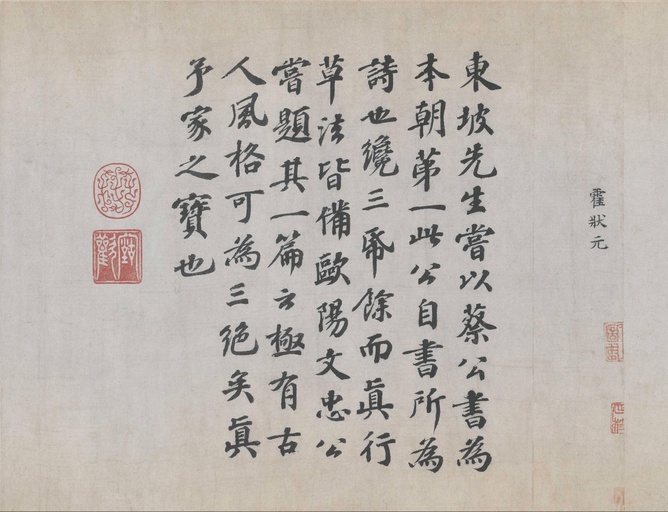 霍狀元
東坡先生嘗以蔡公書為
本朝第一此公自書所為
詩也纔三帋餘而真行
草法皆備歐陽文忠公
嘗題其一篇云極有古
人風格可為三絕矣真
予家之寶也